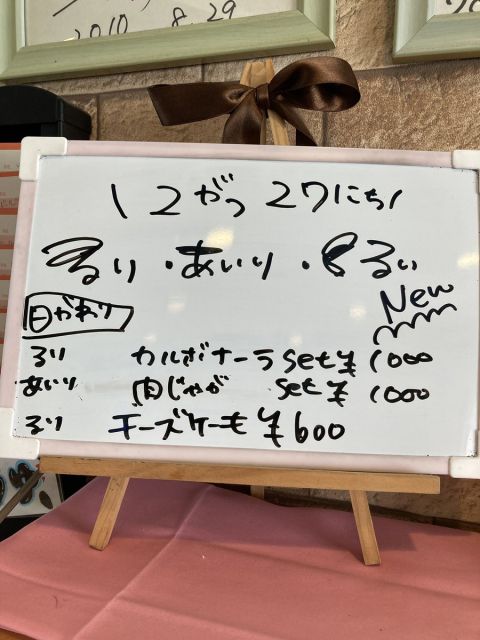 2010 8.29
12がつ 27にち
るり・あいり・せるい
New
日がわり
るり カルボナーラ set ¥1000
あいり 肉じゃが set ¥1000
るり チーズケーキ ¥600